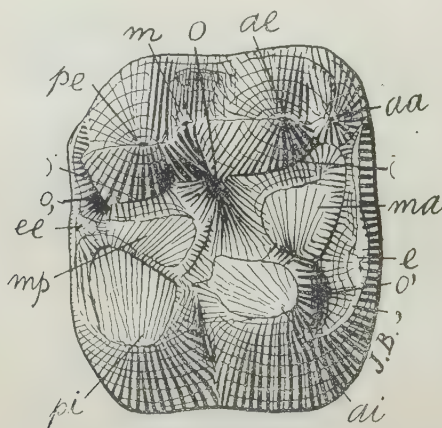 m o ae
pe aa
) (
o, ma
ee e
mp o'
,
J.B.
pi ai